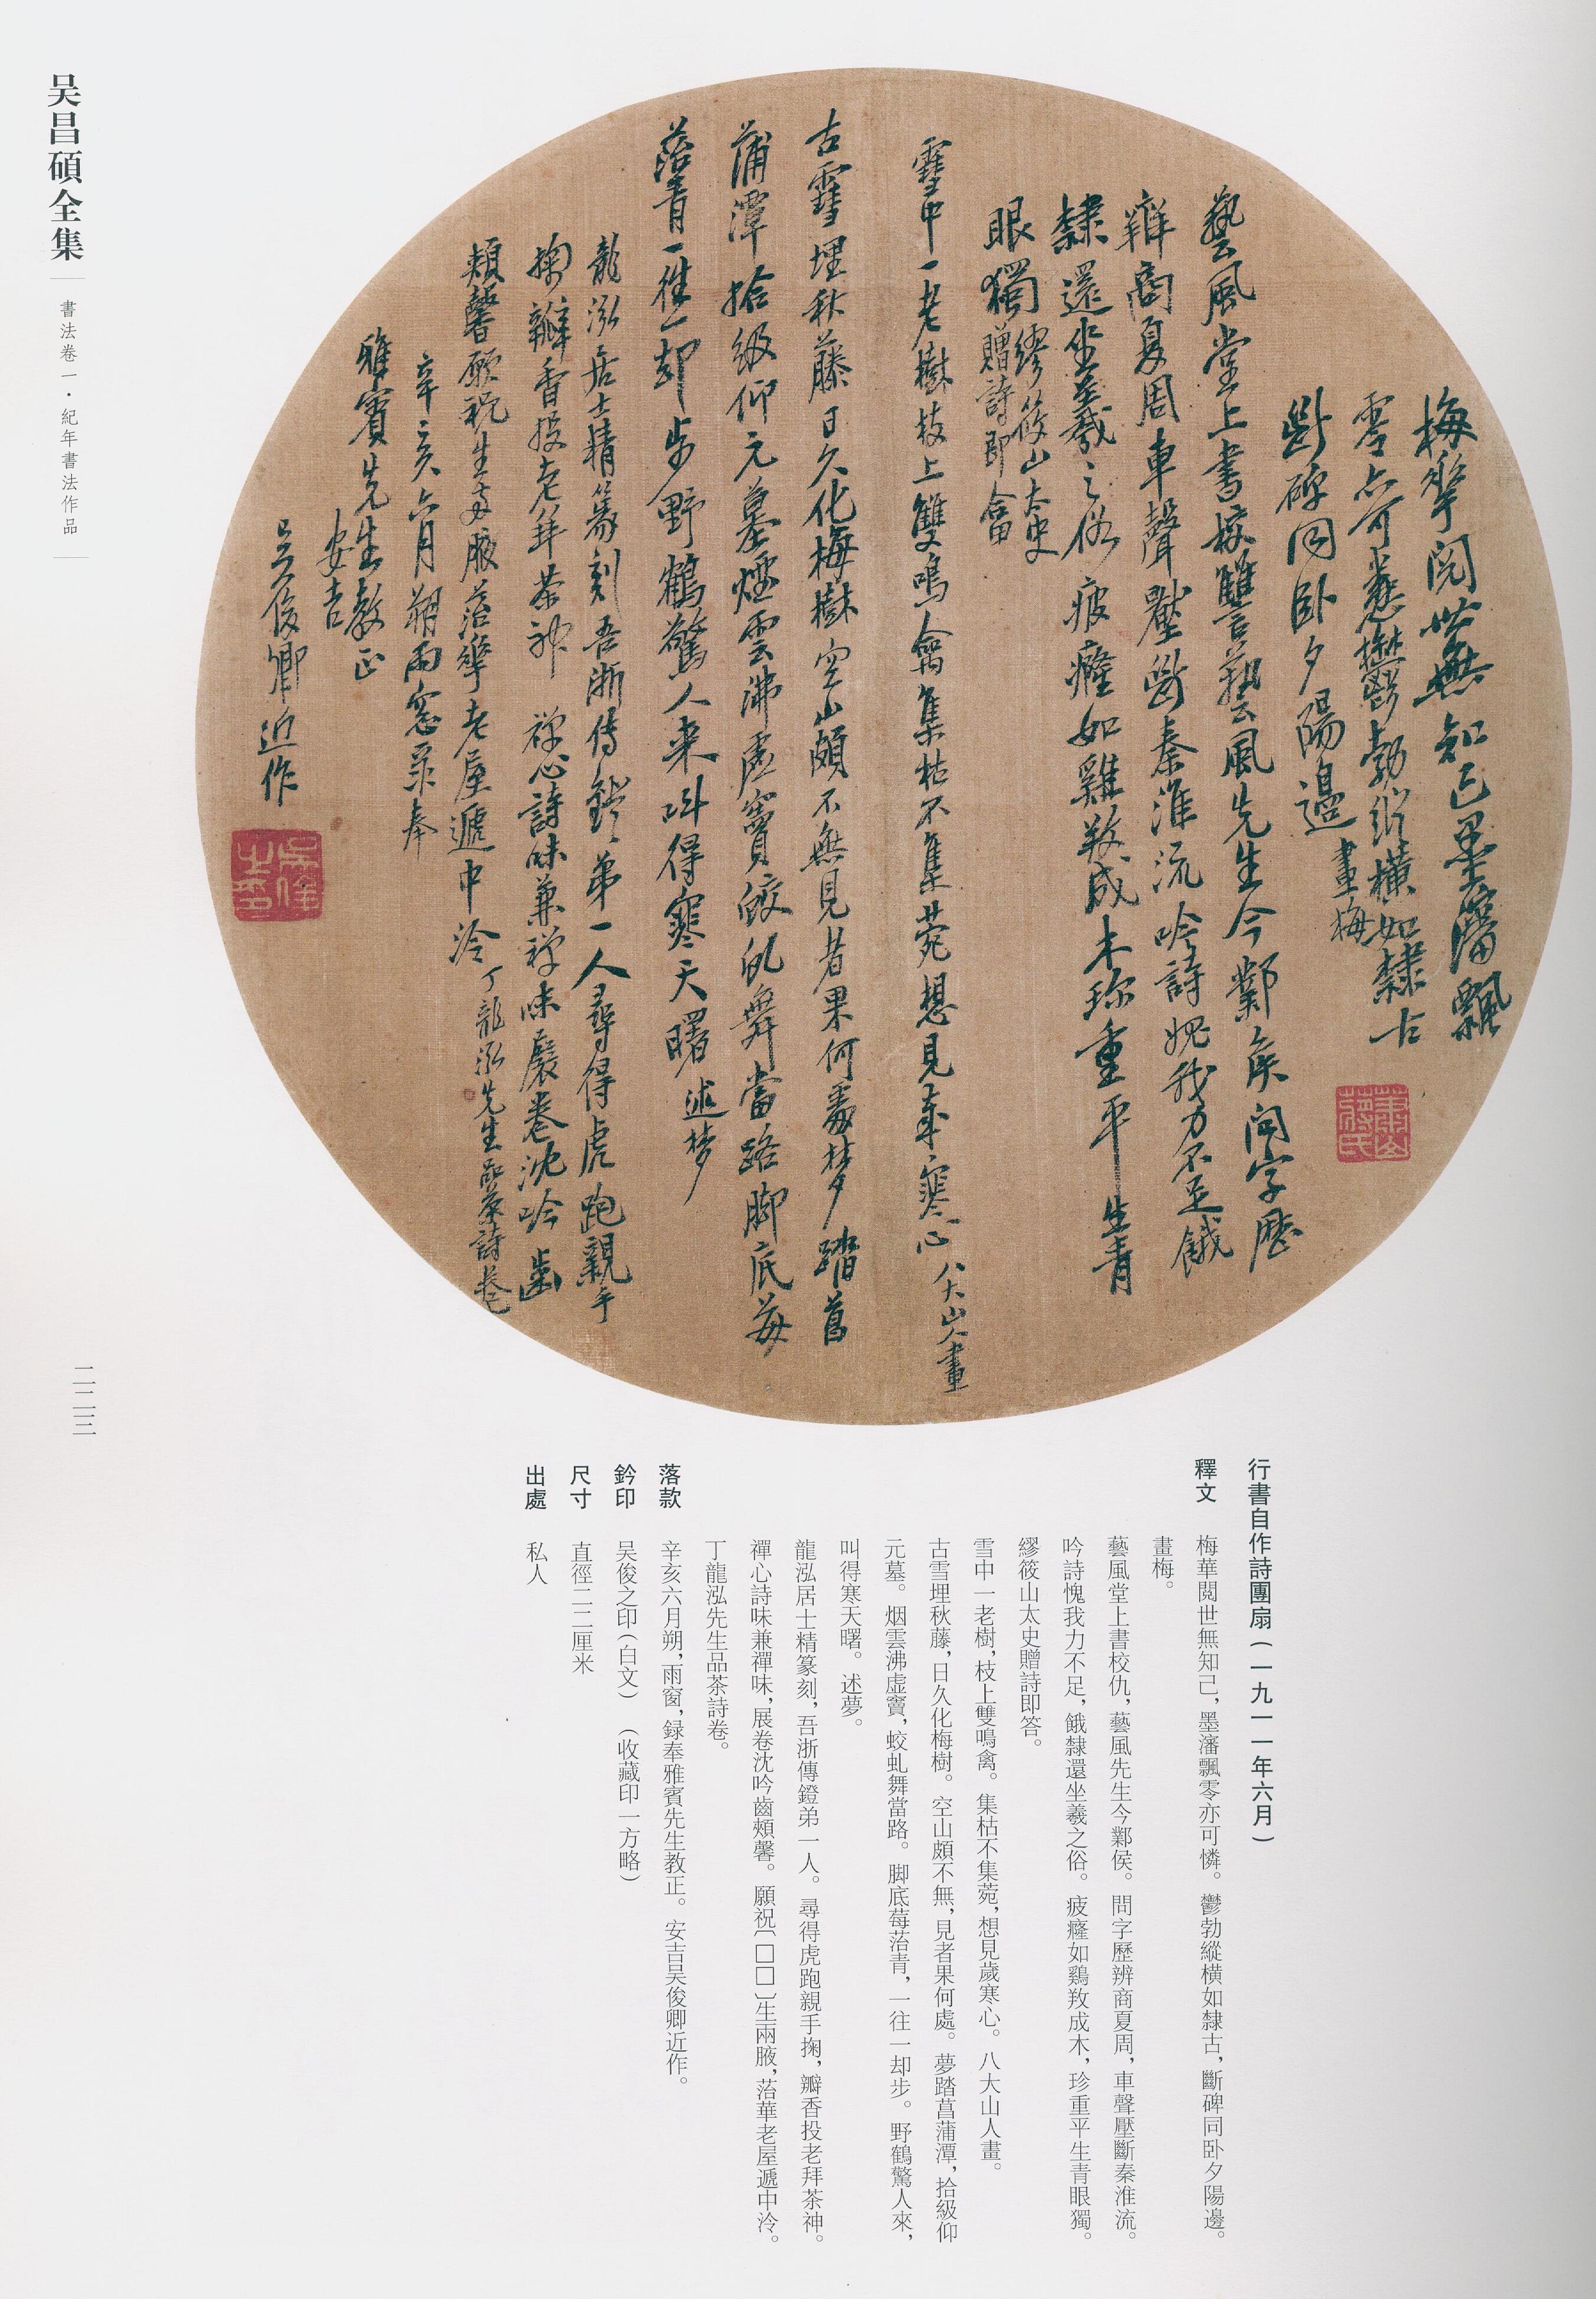 吴昌碩全集
書法卷一·紀年書法作品
二二三
梅華閱世無知己墨瀋飄
零亦可憐鬱勃縱橫如隸古
斷碑同卧夕陽邊 畫梅
藝風堂上書校讎藝風先生今鄴侯問字歷
辨商夏周車聲壓斷秦淮流吟詩愧我力不足餓
隸還坐羲之俗疲癃如雞敎成木珍重平生青
眼獨 繆筱山太史
贈詩即畣
雪中一老樹枝上雙鳴禽集枯不集菀想見歲寒心 八大山人畫
古雪埋秋藤日久化梅樹空山頗不無見者果何處夢踏菖
蒲潭拾級仰元墓煙雲沸虛竇蛟虬舞當路脚底莓
萿青一往一却步野鶴驚人来叫得寒天曙 述夢
龍泓居士精篆刻吾浙傳鐙弟一人尋得虎跑親手
掬瓣香投老拜茶神禪心詩味兼禪味展卷沈吟齒
頰馨願祝生兩腋萿華老屋遞中泠 丁龍泓先生品茶詩卷
辛亥六月朔雨窗录奉
雅賓先生教正
安吉
吴俊卿近作
吴俊之印
行書自作詩團扇(一九一一年六月)
釋文 梅華閱世無知己,墨瀋飄零亦可憐。鬱勃縱橫如隸古,斷碑同卧夕陽邊。
畫梅。
藝風堂上書校仇,藝風先生今鄴侯。問字歷辨商夏周,車聲壓斷秦淮流。
吟詩愧我力不足,餓隸還坐羲之俗。疲癃如鷄敎成木,珍重平生青眼獨。
繆筱山太史贈詩即答。
雪中一老樹,枝上雙鳴禽。集枯不集菀,想見歲寒心。八大山人畫。
古雪埋秋藤,日久化梅樹。空山頗不無,見者果何處。夢踏菖蒲潭,拾級仰
元墓。烟雲沸虛竇,蛟虬舞當路。脚底莓萿青,一往一却步。野鶴驚人來,
叫得寒天曙。述夢。
龍泓居士精篆刻,吾浙傳鐙弟一人。尋得虎跑親手掬,瓣香投老拜茶神。
禪心詩味兼禪味,展卷沈吟齒頰馨。願祝〔□□〕生兩腋,萿華老屋遞中泠。
丁龍泓先生品茶詩卷。
落款 辛亥六月朔,雨窗,録奉雅賓先生教正。安吉吴俊卿近作。
鈐印 吴俊之印(白文) (收藏印一方略)
尺寸 直徑二二厘米
出處 私人